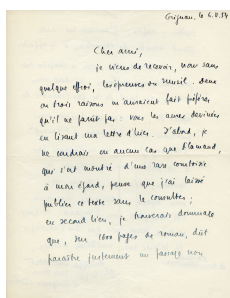 Grignan, le 6.X.54
Cher ami,
je viens de recevoir, non sans
quelque effroi, les épreuves du recueil. Deux
ou trois raisons m'auraient fait préférer
qu'il ne parût pas : vous les aurez devinées
en lisant ma lettre d'hier. D'abord, je
ne voudrais en aucun cas que
qui s'est montré d'une rare courtoisie
à mon égard, pense que j'ai laissé
publier ce texte sans le consulter ;
en second lieu, je trouverais dommage
que, sur 1600 pages de roman, dût
paraître justement un passage non